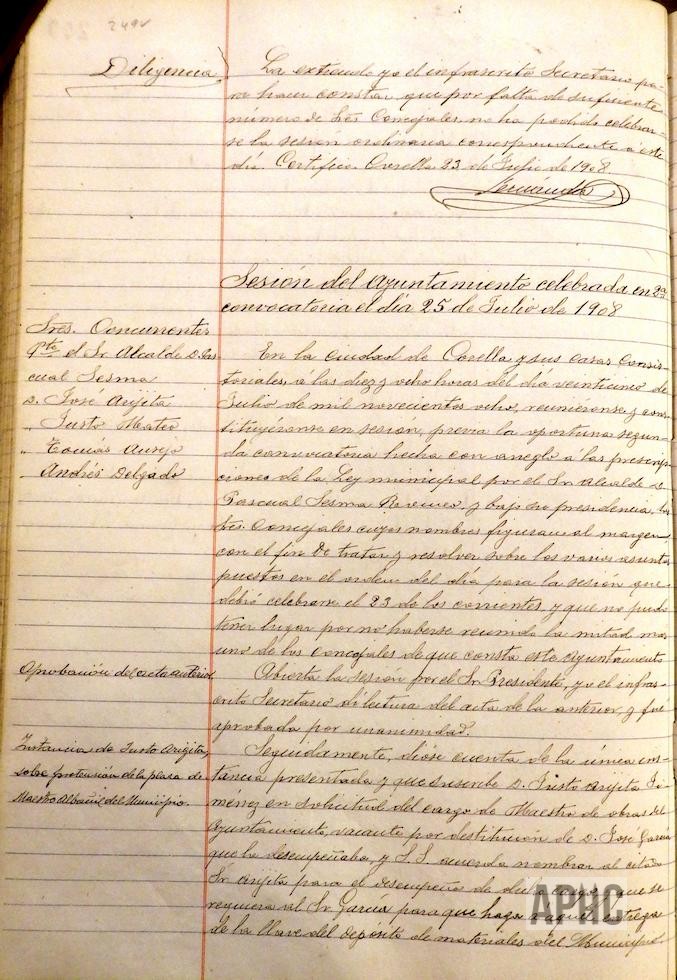 249v
Diligencia
La extiendo yo el infrascrito Secretario pa-
ra hacer constar que por falta de suficiente
número de Sres Concejales, no ha podido celebrar-
se la sesion ordinaria correspondiente á este
dia. Certifico. Corella 23 de Julio de 1908.
Sesión del Ayuntamiento celebrada en 2ª
convocatoria el dia 25 de Julio de 1908
Sres. Concurrentes
Pte el Sr. Alcalde D. Pas
cual Sesma
D. José Arijita
" Justo Mateo
" Tomás Ausejo
Andrés Delgado
En la ciudad de Corella y sus casas Consis
toriales, á las diez y ocho horas del dia veinticinco de
Julio de mil novecientos ocho, reuniéronse y cons
tituyéronse en sesión, previa la oportuna segun-
da convocatoria hecha con arreglo á las prescrip
ciones de la Ley municipal por el Sr. Alcalde D.
Pascual Sesma y bajo su presidencia, los
Sres. Concejales cuyos nombres figuran al margen,
con el fin de tratar y resolver sobre los varios asuntos
puestos en el orden del dia para la sesión que
debió celebrarse el 23 de los corrientes, y que no pudo
tener lugar por no haberse reunido la mitad mas
uno de los concejales de que consta este Ayuntamiento
Aprobación del acta anterior
Abierta la sesión por el Sr. Presidente, yo el infras-
crito Secretario di lectura del acta de la anterior, y fué
aprobada por unanimidad.
Instancia de Justo Arijita,
sobre pretensión de la plaza de
Maestro Albañil del Municipio.
Seguidamente, dióse cuenta de la única ins-
tancia presentada y que suscribe D. Justo Arijita Ji
ménez en solicitud del cargo de Maestro de obras del
Ayuntamiento, vacante por destitución de D. José García
que la desempeñaba, y S.S. acuerda nombrar al citado
Sr. Arijita para el desempeño de dicho cargo y que se
requiera al Sr. García para que haga á aquel entrega
de la llave del depósito de materiales del Municipio.
APHC